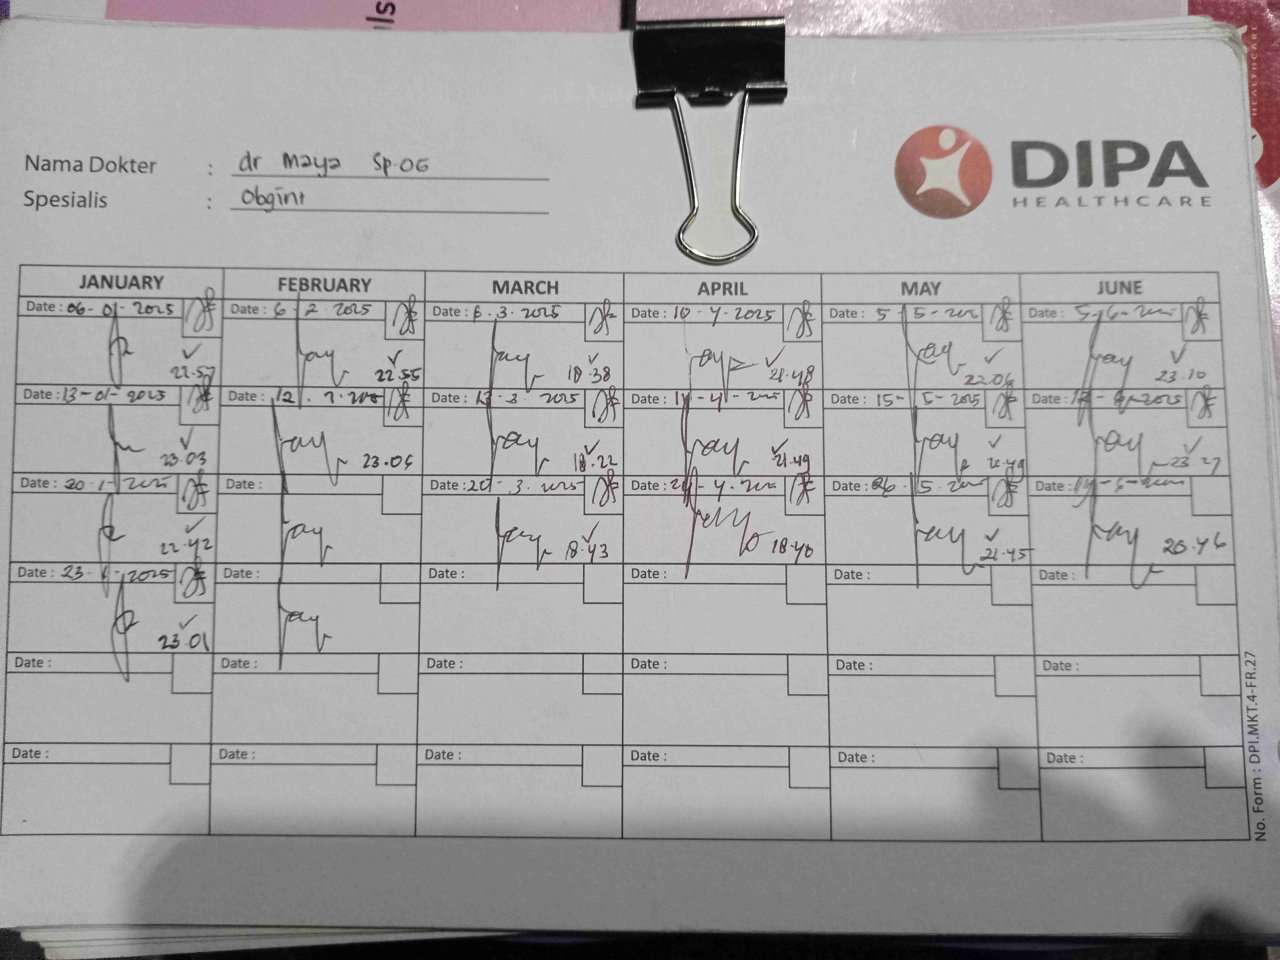 ls
Nama Dokter : dr Maya Sp.OG
Spesialis : Obgini
DIPA
HEALTHCARE
JANUARY FEBRUARY MARCH APRIL MAY JUNE
Date : 06-01-2025 Date : 6 . 2 2025 Date : 6.3.2025 Date : 10-4-2025 Date : 5 - 5- Date : 5-6-
22.57 22.55 18.38 21.48 22.06 23.10
Date : 13-01-2025 Date : 12 . 2. Date : 13-3.2025 Date : -4- Date : 15- 5-2025 Date : -2025
23.03 23.05 18.22 21.49 23.27
Date : 20.1- Date : Date : 20.3.2025 Date : -4. Date : 26. 5- Date :
22.42 18.43 18.46 21.45 20.46
Date : 23-1-2025 Date : Date : Date : Date : Date :
23.01
Date : Date : Date : Date : Date : Date :
Date : Date : Date : Date : Date : Date :
No. Form : DPI.MKT.4-FR.27
HEALTHCARE